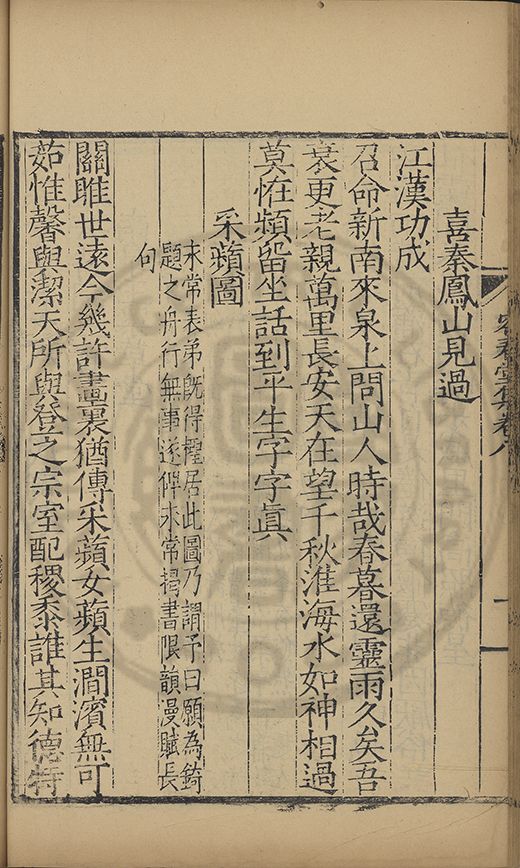 喜秦鳳山見過
江漢功成
召命新南來泉上問山人時哉春暮還靈雨久矣吾
衰更老親萬里長安天在望千秋淮海水如神相過
莫恠頻留坐話到平生字字眞
采蘋圖
末常表弟旣得檉居此圖乃謂予曰願為錡
題之舟行無事遂俾末常揭書限韻漫賦長
句
關雎世遠今幾許畫裏猶傳采蘋女蘋生澗濱無可
茹惟馨與潔天所與登之宗室配稷黍誰其知德特